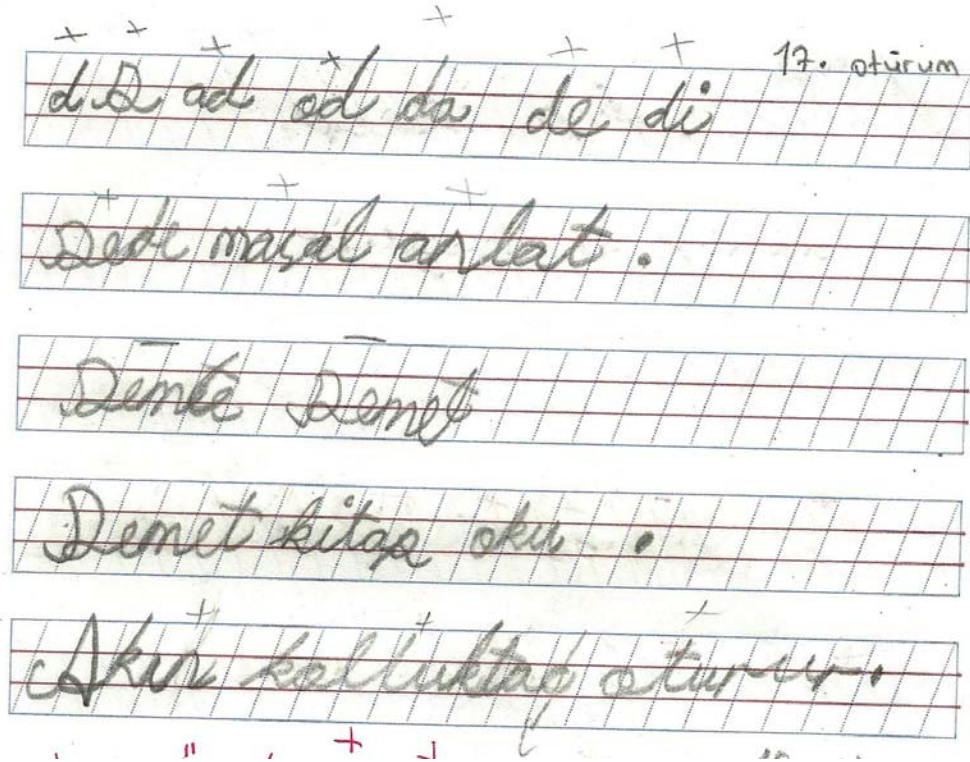 17. oturum
d D ad od da de di
Dede masal anlat.
Demte Demet
Demet kitap oku.
Akın koltuktaq oturur.